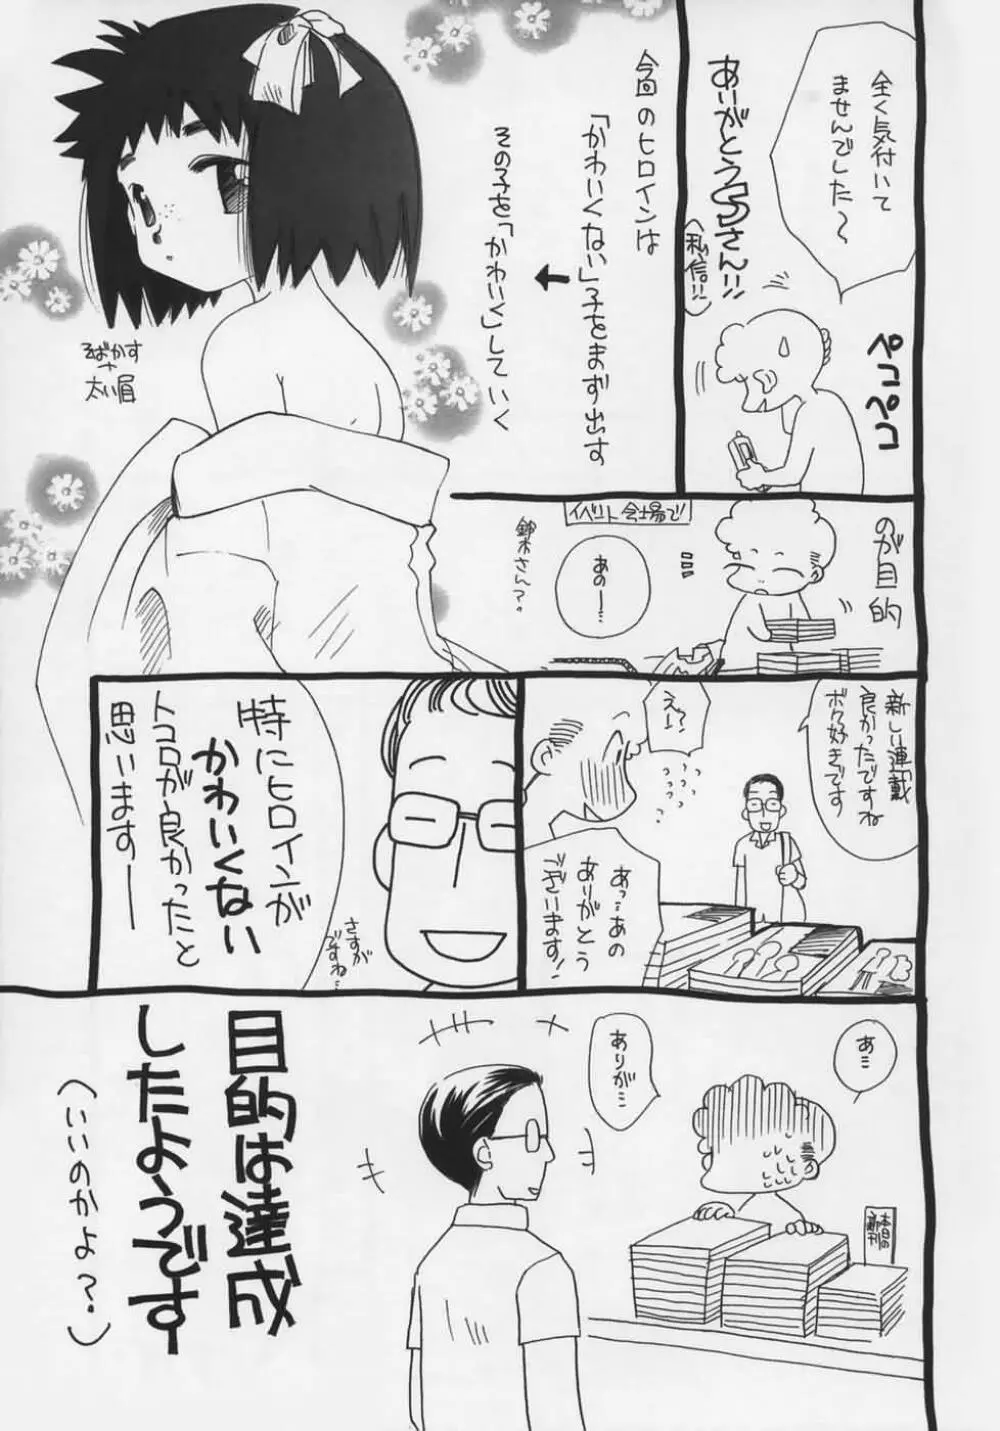 全く気付いて
ませんでした〜
ペコペコ
あいがとうSさん!!
(私信!!)
今回のヒロインは
「かわいくない」子をまず出す
その子を「かわいく」していく
そばかす
+
太い眉
の が目的
イベント会場で
あのー…
鈴木さん?。
新しい連載
良かったですね
ボク好きです
えー?
あっ…あの
ありがとう
ございます!
特にヒロインが
かわいくない
トコロが良かったと
思いますー
さすが
ですね…
あ…
ありが…
本日の
新刊
目的は達成
したようです
(いいのかよ?。)